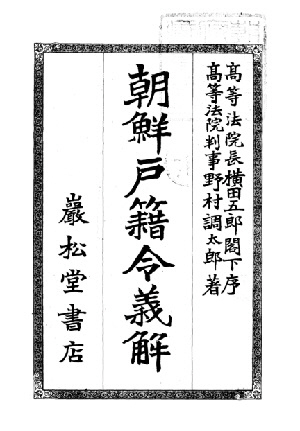 高等法院長横田五郎閣下序
高等法院判事野村調太郎著
朝鮮戸籍令義解
巖松堂書店